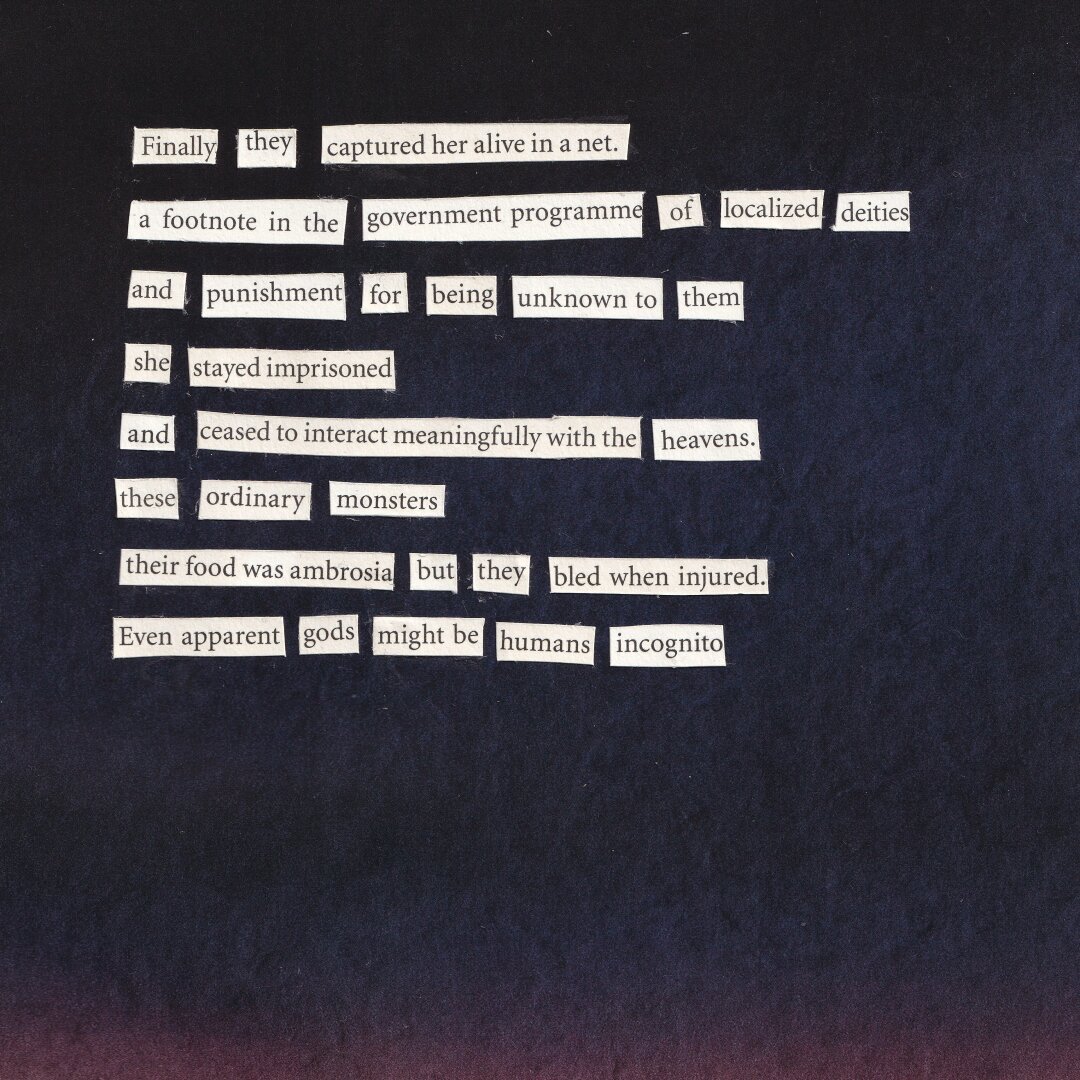 Finally they captured her alive in a net.
a footnote in the government programme of localized deities
and punishment for being unknown to them
she stayed imprisoned
and ceased to interact meaningfully with the heavens.
these ordinary monsters
their food was ambrosia but they bled when injured.
Even apparent gods might be humans incognito